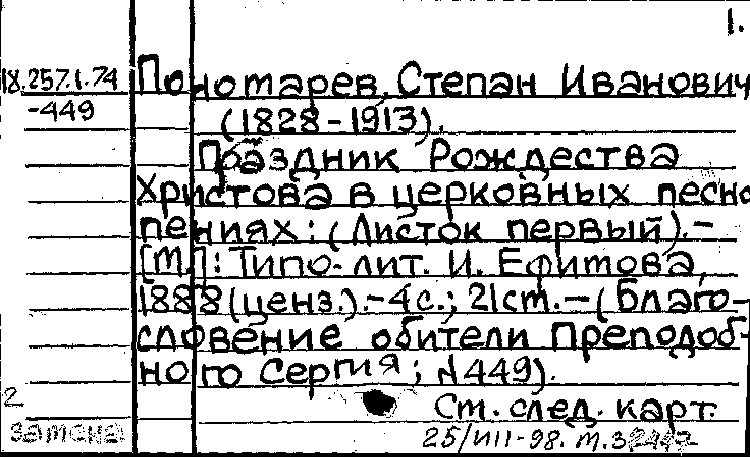 1.
18.257.1.74
-449
Пономарев, Степан Иванович
(1828-1913).
Праздник Рождества
Христова в церковных песно
пениях: (Листок первый).-
[М.]: Типо-лит. И. Ефимова,
1888 (ценз.).-4с.; 21см.-(Благо-
словение обители Преподоб-
ного Сергия; №449).
2
замена
См. след. карт.
25/VIII-98. т.